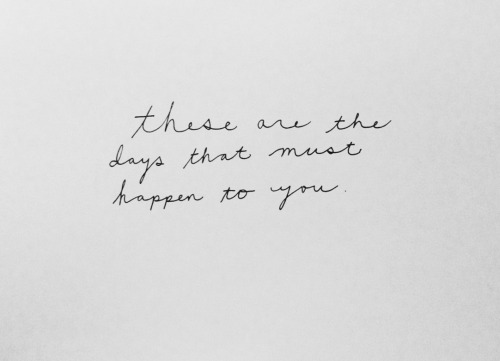 these are the
days that must
happen to you.